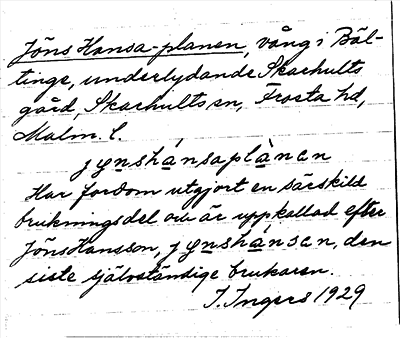 Jöns Hansa-planen, vång i Böl-
tinge, underlydande Skarhults
gård, Skarhults sn, Frosta hd,
Malm. l.
jy̱nshánsaplànan
Har fordom utgjort en särskild
brukningsdel och är uppkallad efter
Jöns Hansson, jy̱nshánsan, den
siste självständige brukaren.
I. Ingers 1929